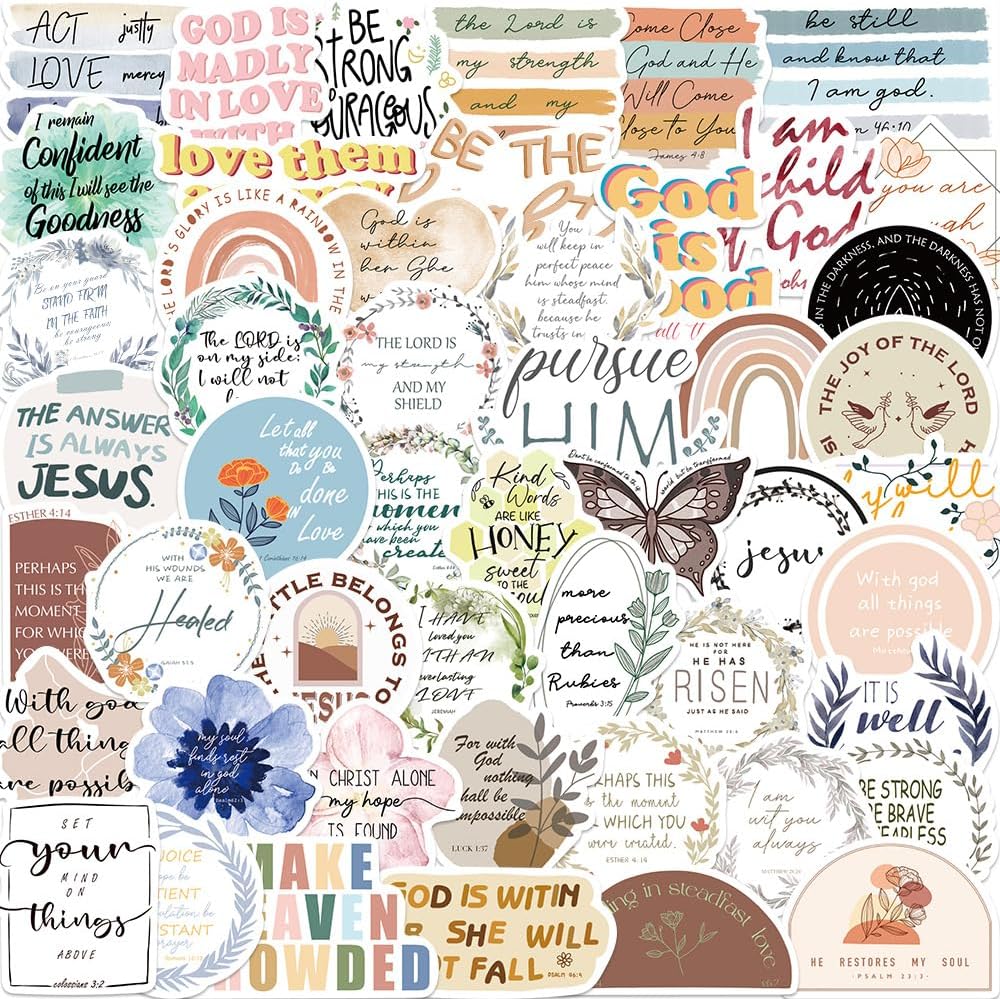 ACT justly
LOVE mercy
GOD IS
MADLY
IN LOVE
WITH
BE
STRONG
COURAGEOUS
the Lord is
my strength
and my
Come Close
God and He
Will Come
Close to You
James 4:8
be still
and know that
I am god.
46:10
I remain
Confident
of this I will see the
Goodness
love them
BE THE
God
is
good
all
I am
child
God
you are
THE LORD'S GLORY IS LIKE A RAINBOW IN THE
God is
within
her She
You
will keep in
perfect peace
him whose mind
is steadfast,
because he
trusts in
IN THE DARKNESS, AND THE DARKNESS HAS NOT
Be on your guard
STAND FIRM
IN THE FAITH
be courageous
be strong
The LORD is
on my side;
I will not
THE LORD IS
my strength
AND MY
SHIELD
pursue
HIM
THE JOY OF THE LORD
IS
THE ANSWER
IS ALWAYS
JESUS.
Let all
that you
Do Be
done
IN
Love
1 Corinthians 16:14
Perhaps
THIS IS THE
moment
which you
have been
create
Kind
Words
ARE LIKE
HONEY
sweet
TO THE
SOUL
Don't be conformed to this world but be transformed
y will
ESTHER 4:14
PERHAPS
THIS IS TH
MOMENT
FOR WHIC
YOU WERE
WITH
HIS WOUNDS
WE ARE
Healed
ISAIAH 53:5
BATTLE BELONGS TO
JESUS
I HAVE
loved you
WITH AN
everlasting
LOVE
JEREMIAH
more
precious
than
Rubies
Proverbs 3:15
jesus
HE IS NOT HERE
FOR
HE HAS
RISEN
JUST AS HE SAID
MATTHEW 28:6
With god
all things
are possible
Matthew
With god
all thing
are possib
my soul
finds rest
in god
alone
IN CHRIST ALONE
my hope
IS FOUND
For with
God
nothing
shall be
impossible
LUCK 1:37
IT IS
well
HAPS THIS
is the moment
WHICH YOU
were created.
ESTHER 4:14
I am
wit you
always
MATTHEW 28:20
BE STRONG
BE BRAVE
FEARLESS
SET
your
MIND
ON
things
ABOVE
colossians 3:2
OICE
hope be
TIENT
ulation be
STANT
prayer
Romans 12:12
MAKE
EAVEN
ROWDED
OD IS WITIN
R SHE WILL
T FALL
PSALM 46:4
ing in steadfast love
HE RESTORES MY SOUL
·PSALM 23:3·